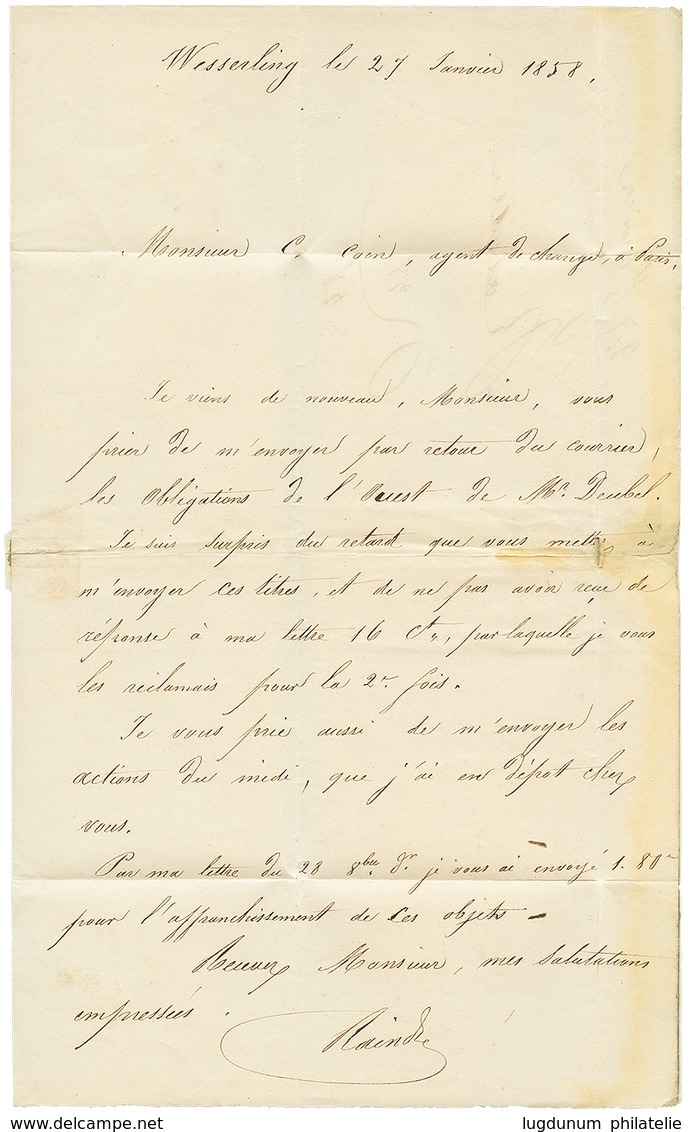 Wesserling le 27 Janvier 1858.
Monsieur C. Coin, agent de change, à Paris.
Je viens de nouveau, Monsieur, vous
prier de m'envoyer par retour du courrier,
les Obligations de l'Ouest de Mr. Deubel.
Je suis surpris du retard que vous mettez à
m'envoyer ces titres, et de ne pas avoir reçu de
réponse à ma lettre 16 Ct., par laquelle je vous
les réclamais pour la 2e. fois.
Je vous prie aussi de m'envoyer les
actions du midi, que j'ai en dépôt chez
vous.
Par ma lettre du 28 8bre. dr. je vous ai envoyé 1.80
pour l'affranchissement de ces objets -
Recevez Monsieur, mes salutations
empressées.
www.delcampe.net
lugdunum philatelie